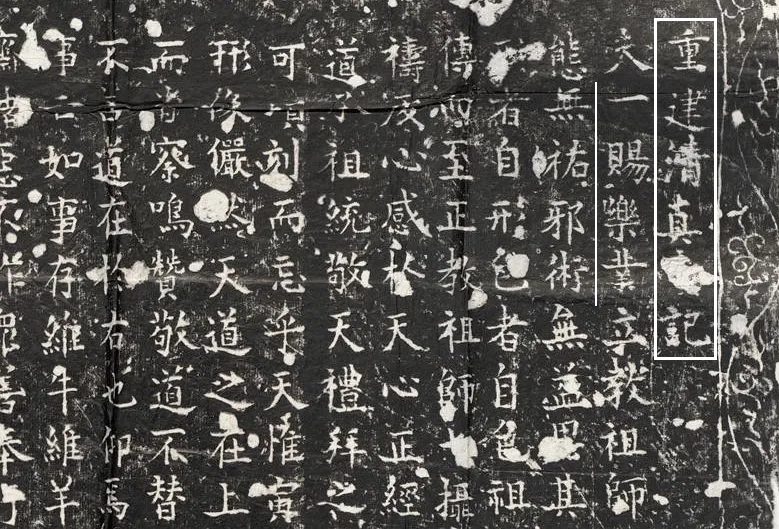 重建清真記
夫一賜樂業立教祖師
態無祐邪術無益思其
者自形色者自色祖
傳而至正教祖師攝
禱心感於天心正經
道祖統敬天禮拜之
可頃刻而忘乎天惟寅
形像儼然天道之在上
而者察鳴贊敬道不替
不言道在於右也仰焉
事亡如事存維牛維羊